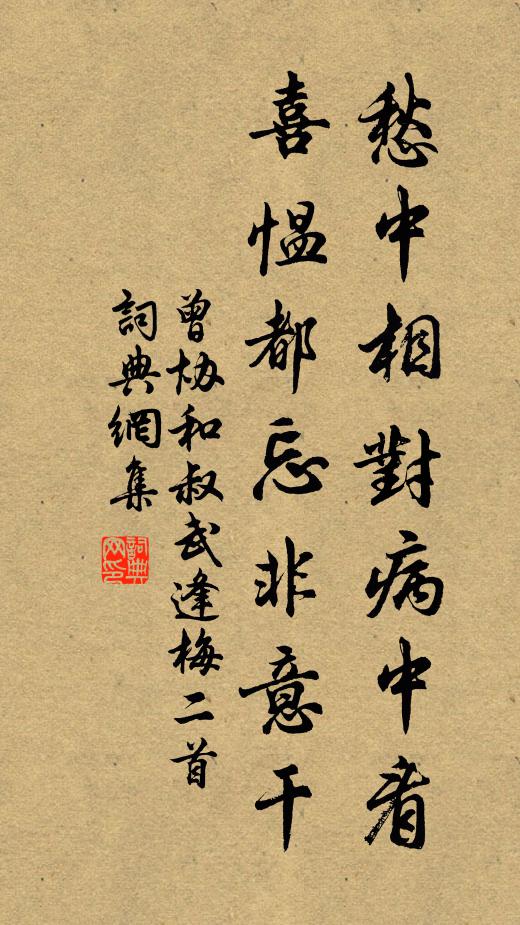 愁中相對病中看
喜愠都忘非意干
曾协和叔武逢梅二首
詞典網集
詞典网印